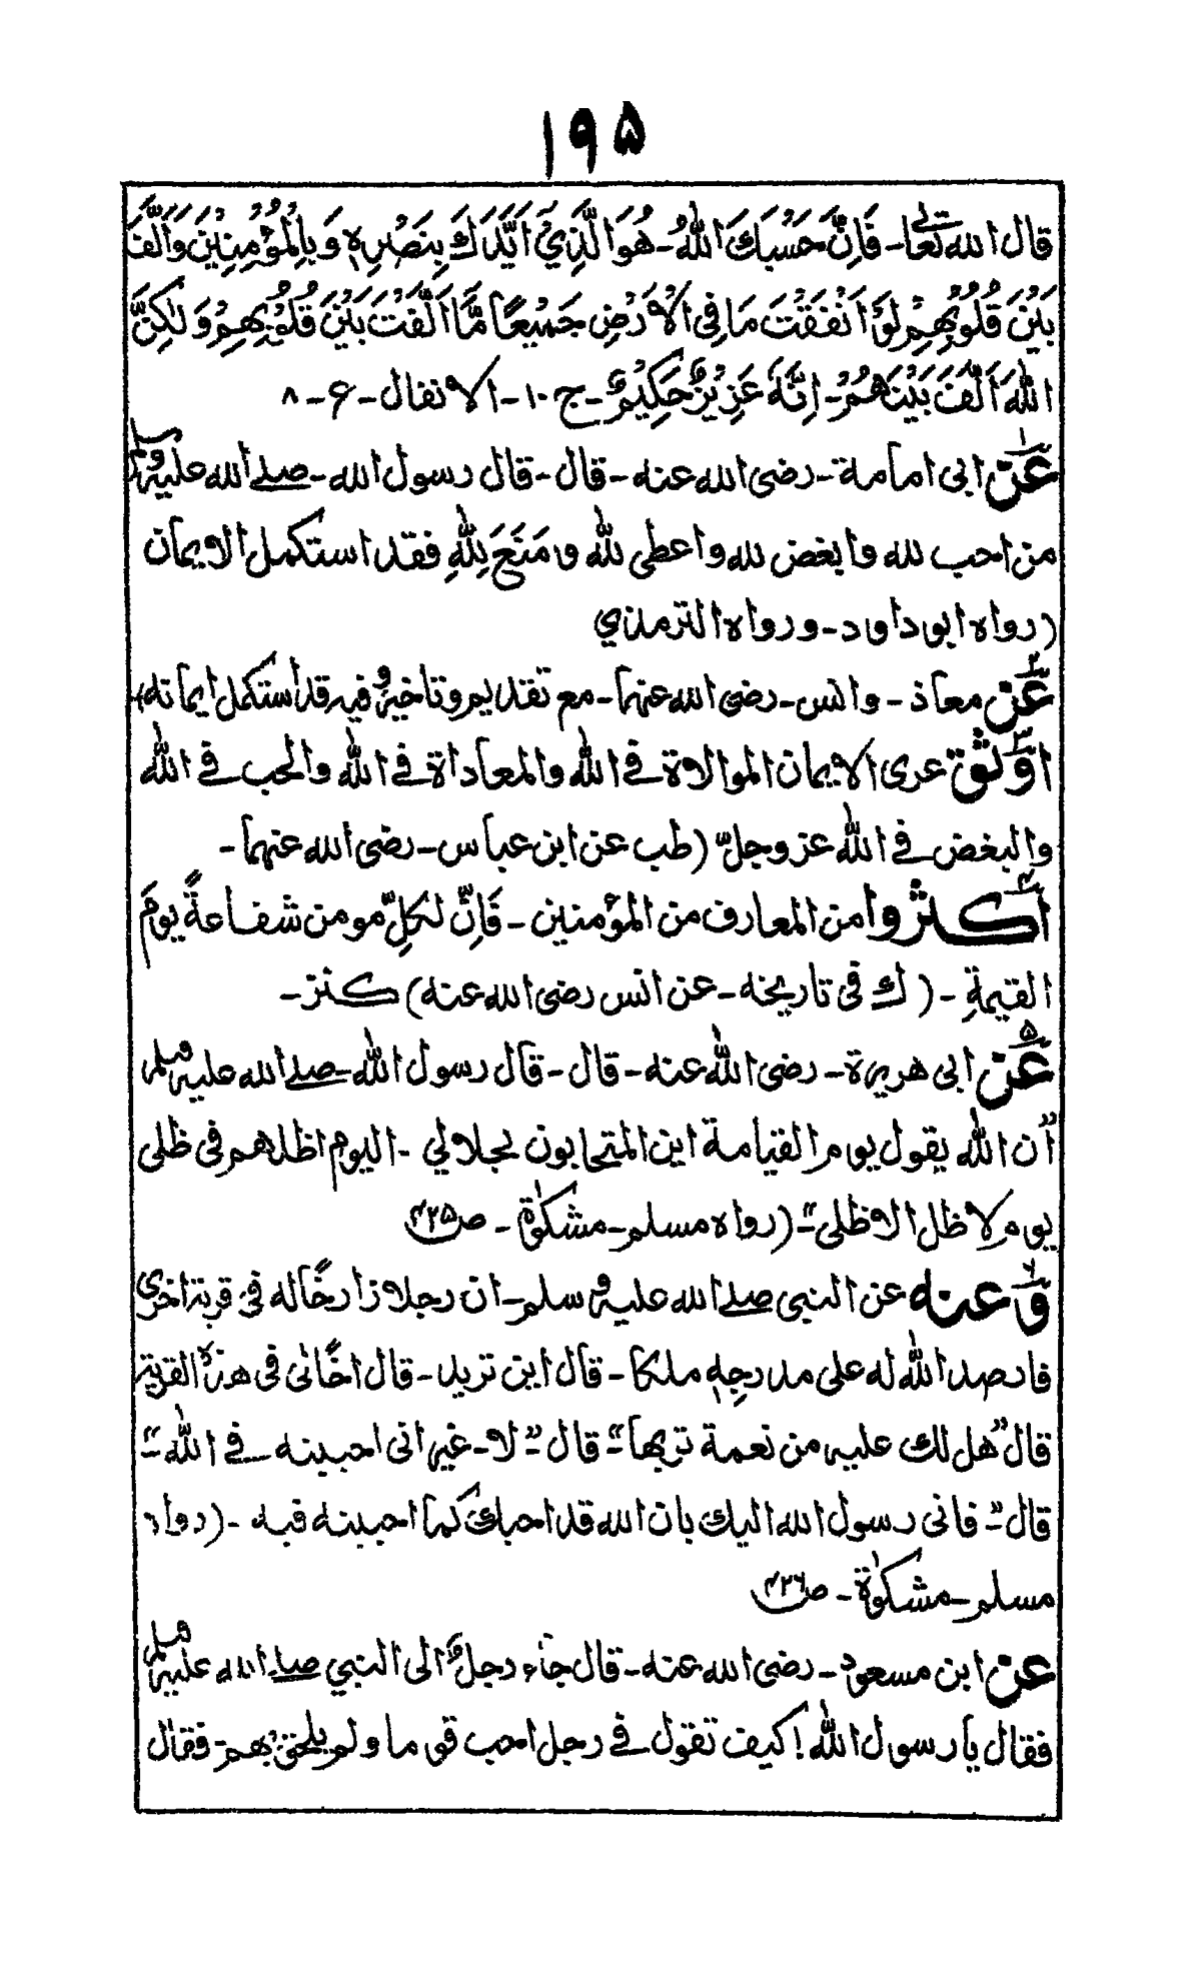 ۱۹۵
قال الله تعالى۔ فَاِنَّ حَسْبَكَ اللهُ۔ هُوَ الَّذِيْ اَيَّدَكَ بِنَصْرِهٖ وَ بِالْمُؤْمِنِيْنَ وَاَلَّفَ
بَيْنَ قُلُوْبِهِمْ لَوْ اَنْفَقْتَ مَا فِى الْاَرْضِ جَمِيْعًا مَّا اَلَّفْتَ بَيْنَ قُلُوْبِهِمْ وَلٰكِنَّ
اللهَ اَلَّفَ بَيْنَهُمْ۔ اِنَّهٗ عَزِيْزٌ حَكِيْمٌ۔ ج ۱۰۔ الانفال۔ ۶۔ ۸
۱ عَن ابى امامة۔ رضى الله عنه۔ قال۔ قال رسول الله۔ صلے الله عليه وسلم
من احب لله وابغض لله واعطى لله ومَنَعَ لِلّٰهِ فقد استكمل الايمان
(رواه ابوداود۔ ورواه الترمذي
۲ عَن معاذ۔ وانس۔ رضى الله عنهما۔ مع تقديم وتاخير وفيه قد استكمل ايمانه،
۳ اَوثق عرى الايمان الموالاة فے الله والمعاداة فے الله والحب فے الله
والبغض فے الله عزوجلّ (طب عن ابن عباس۔ رضى الله عنهما۔
۴ اكثروا من المعارف من المؤمنين۔ فَاِنَّ لكلِّ مومن شفاعةً يومَ
القيمةِ۔ (ك فى تاريخه۔ عن انس رضى الله عنه) كنز۔
۵ عَن ابى هريرة۔ رضى الله عنه۔ قال۔ قال رسول الله۔ صلے الله عليه وسلم
”ان الله يقول يوم القيامة اين المتحابون بجلالي۔ اليوم اظلهم فى ظلى
يوم لا ظل الا ظلى“۔ (رواه مسلم۔ مشكوٰة۔ ص۴۲۵
۶ وَعنه عن النبى صلے الله عليه وسلم۔ ان رجلا زار اخًا له فى قرية اخرى
فارصد الله له على مدرجِهٖ ملكا۔ قال اين تريد۔ قال اخًا لى فى هذه القرية
قال ”هل لك عليه من نعمة تربها“۔ قال ”۔ لا۔ غير انى احببته فے الله“۔
قال ”۔ فانى رسول الله اليك بان الله قد احبك كما احببته فيه۔ (رواه
مسلم۔ مشكوٰة۔ ص۴۲۶
عن ابن مسعود۔ رضى الله عنه۔ قال جآء رجلٌ الى النبي صلے الله عليه وسلم
فقال يا رسول الله! كيف تقول فے رجل احب قوما ولم يلحق بهم۔ فقال